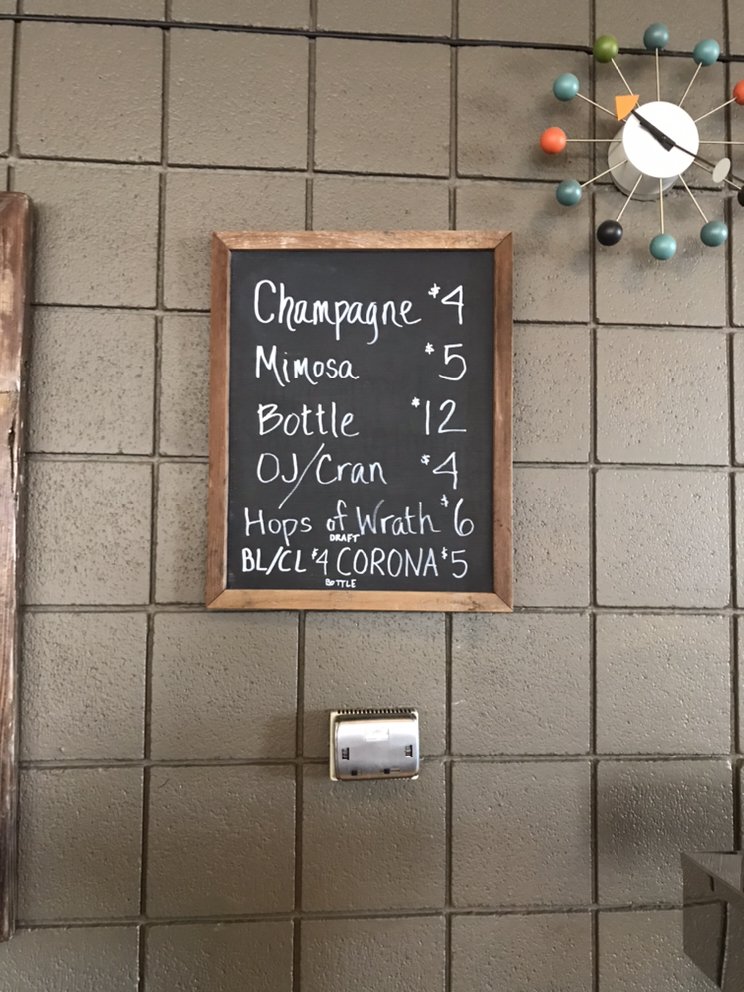 Champagne $4
Mimosa $5
Bottle $12
OJ/Cran $4
Hops of Wrath $6
DRAFT
BL/CL $4 CORONA $5
BOTTLE